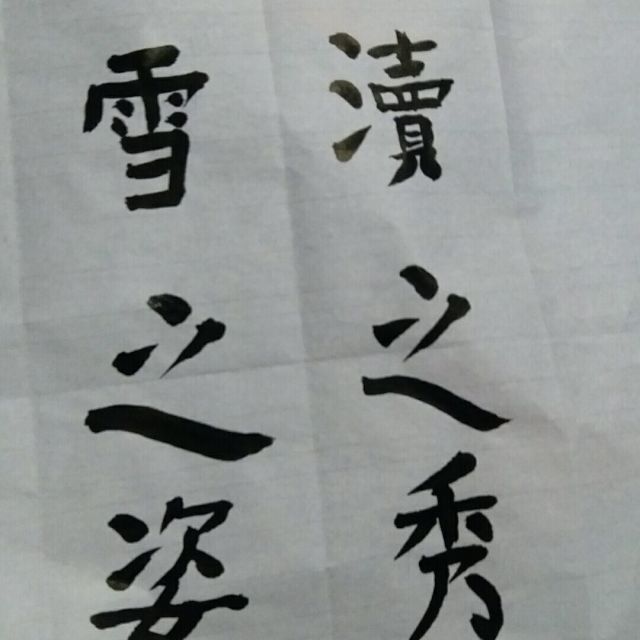 瀆之秀
雪之姿